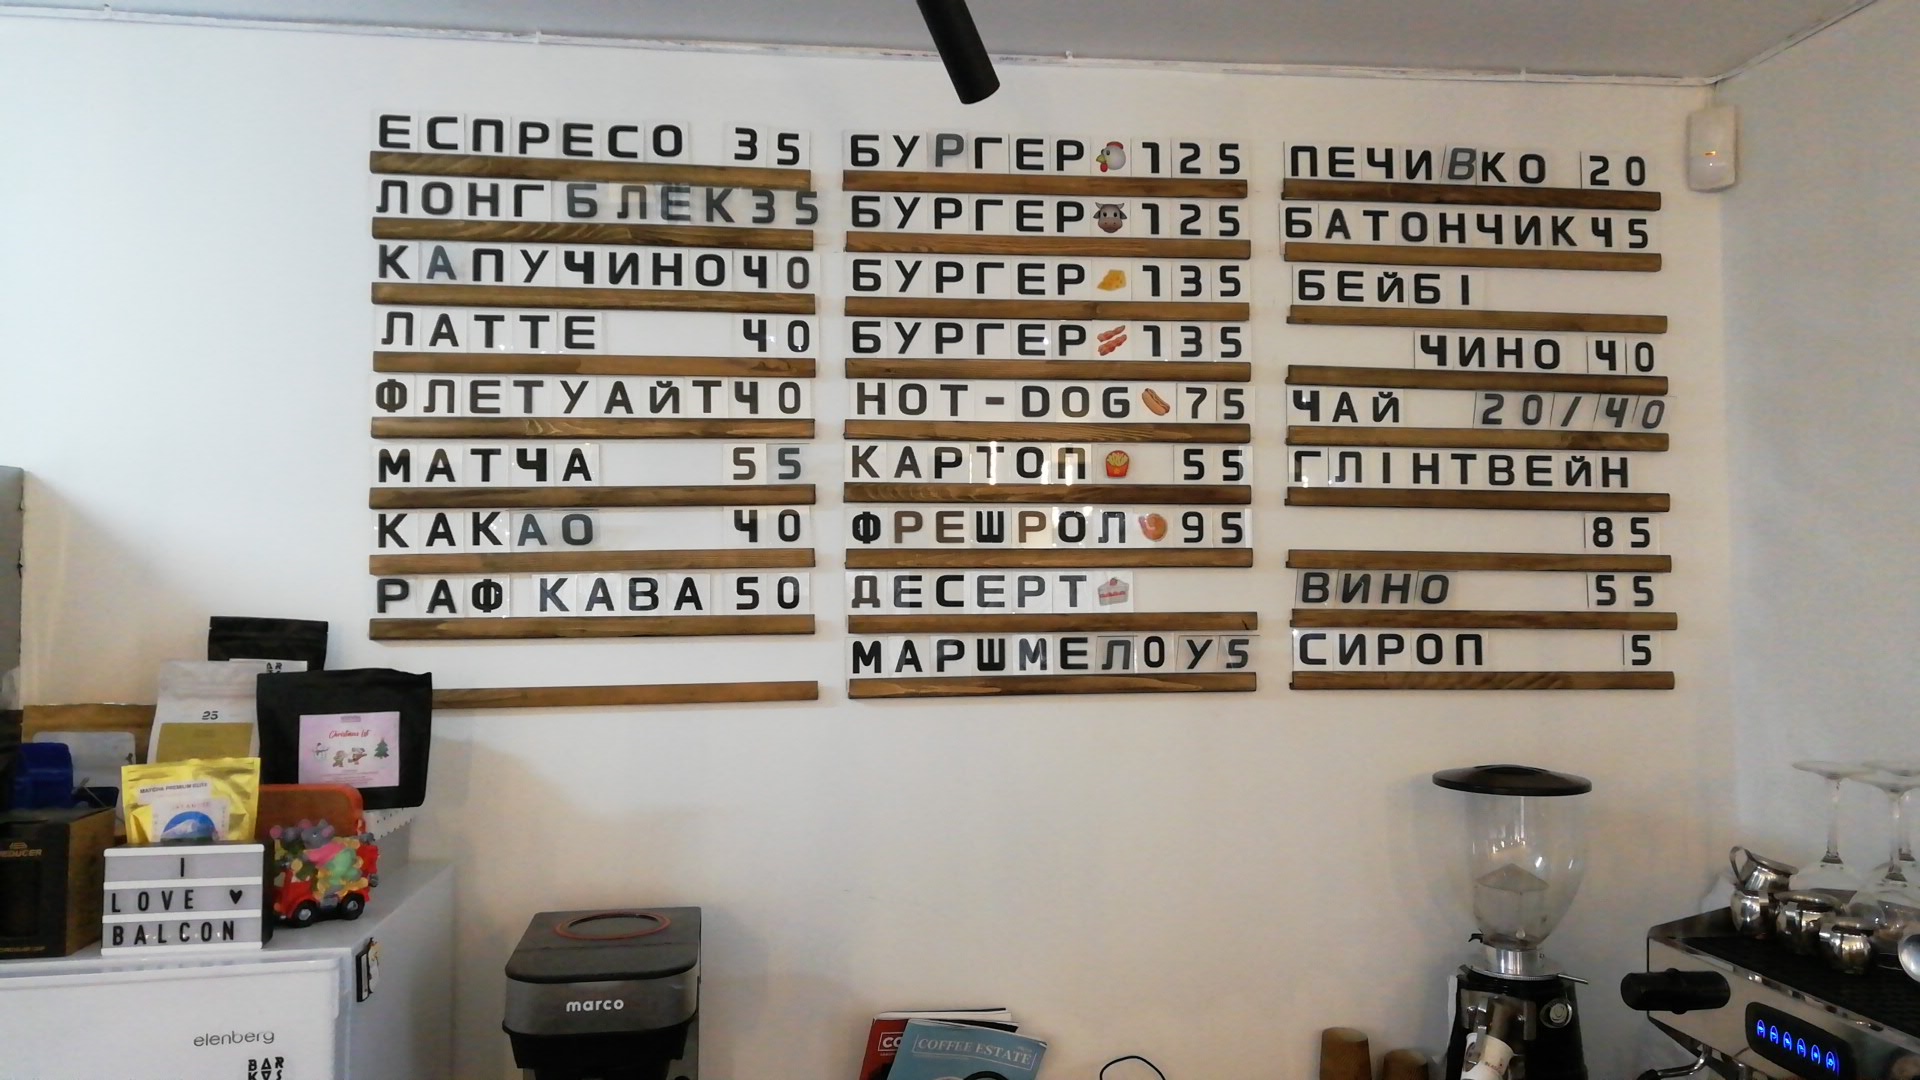 ЕСПРЕСО 35
ЛОНГ БЛЕК 35
КАПУЧИНО 40
ЛАТТЕ 40
ФЛЕТУАЙТ 40
МАТЧА 55
КАКАО 40
РАФ КАВА 50
БУРГЕР 125
БУРГЕР 125
БУРГЕР 135
БУРГЕР 135
HOT-DOG 75
КАРТОП 55
ФРЕШРОЛ 95
ДЕСЕРТ
МАРШМЕЛОУ 5
ПЕЧИВКО 20
БАТОНЧИК 45
БЕЙБІ
ЧИНО 40
ЧАЙ 20/40
ГЛІНТВЕЙН
85
ВИНО 55
СИРОП 5
25
Christmas
MATCHA PREMIUM
I
LOVE ♥
BALCON
elenberg
BAR
marco
COFFEE ESTATE